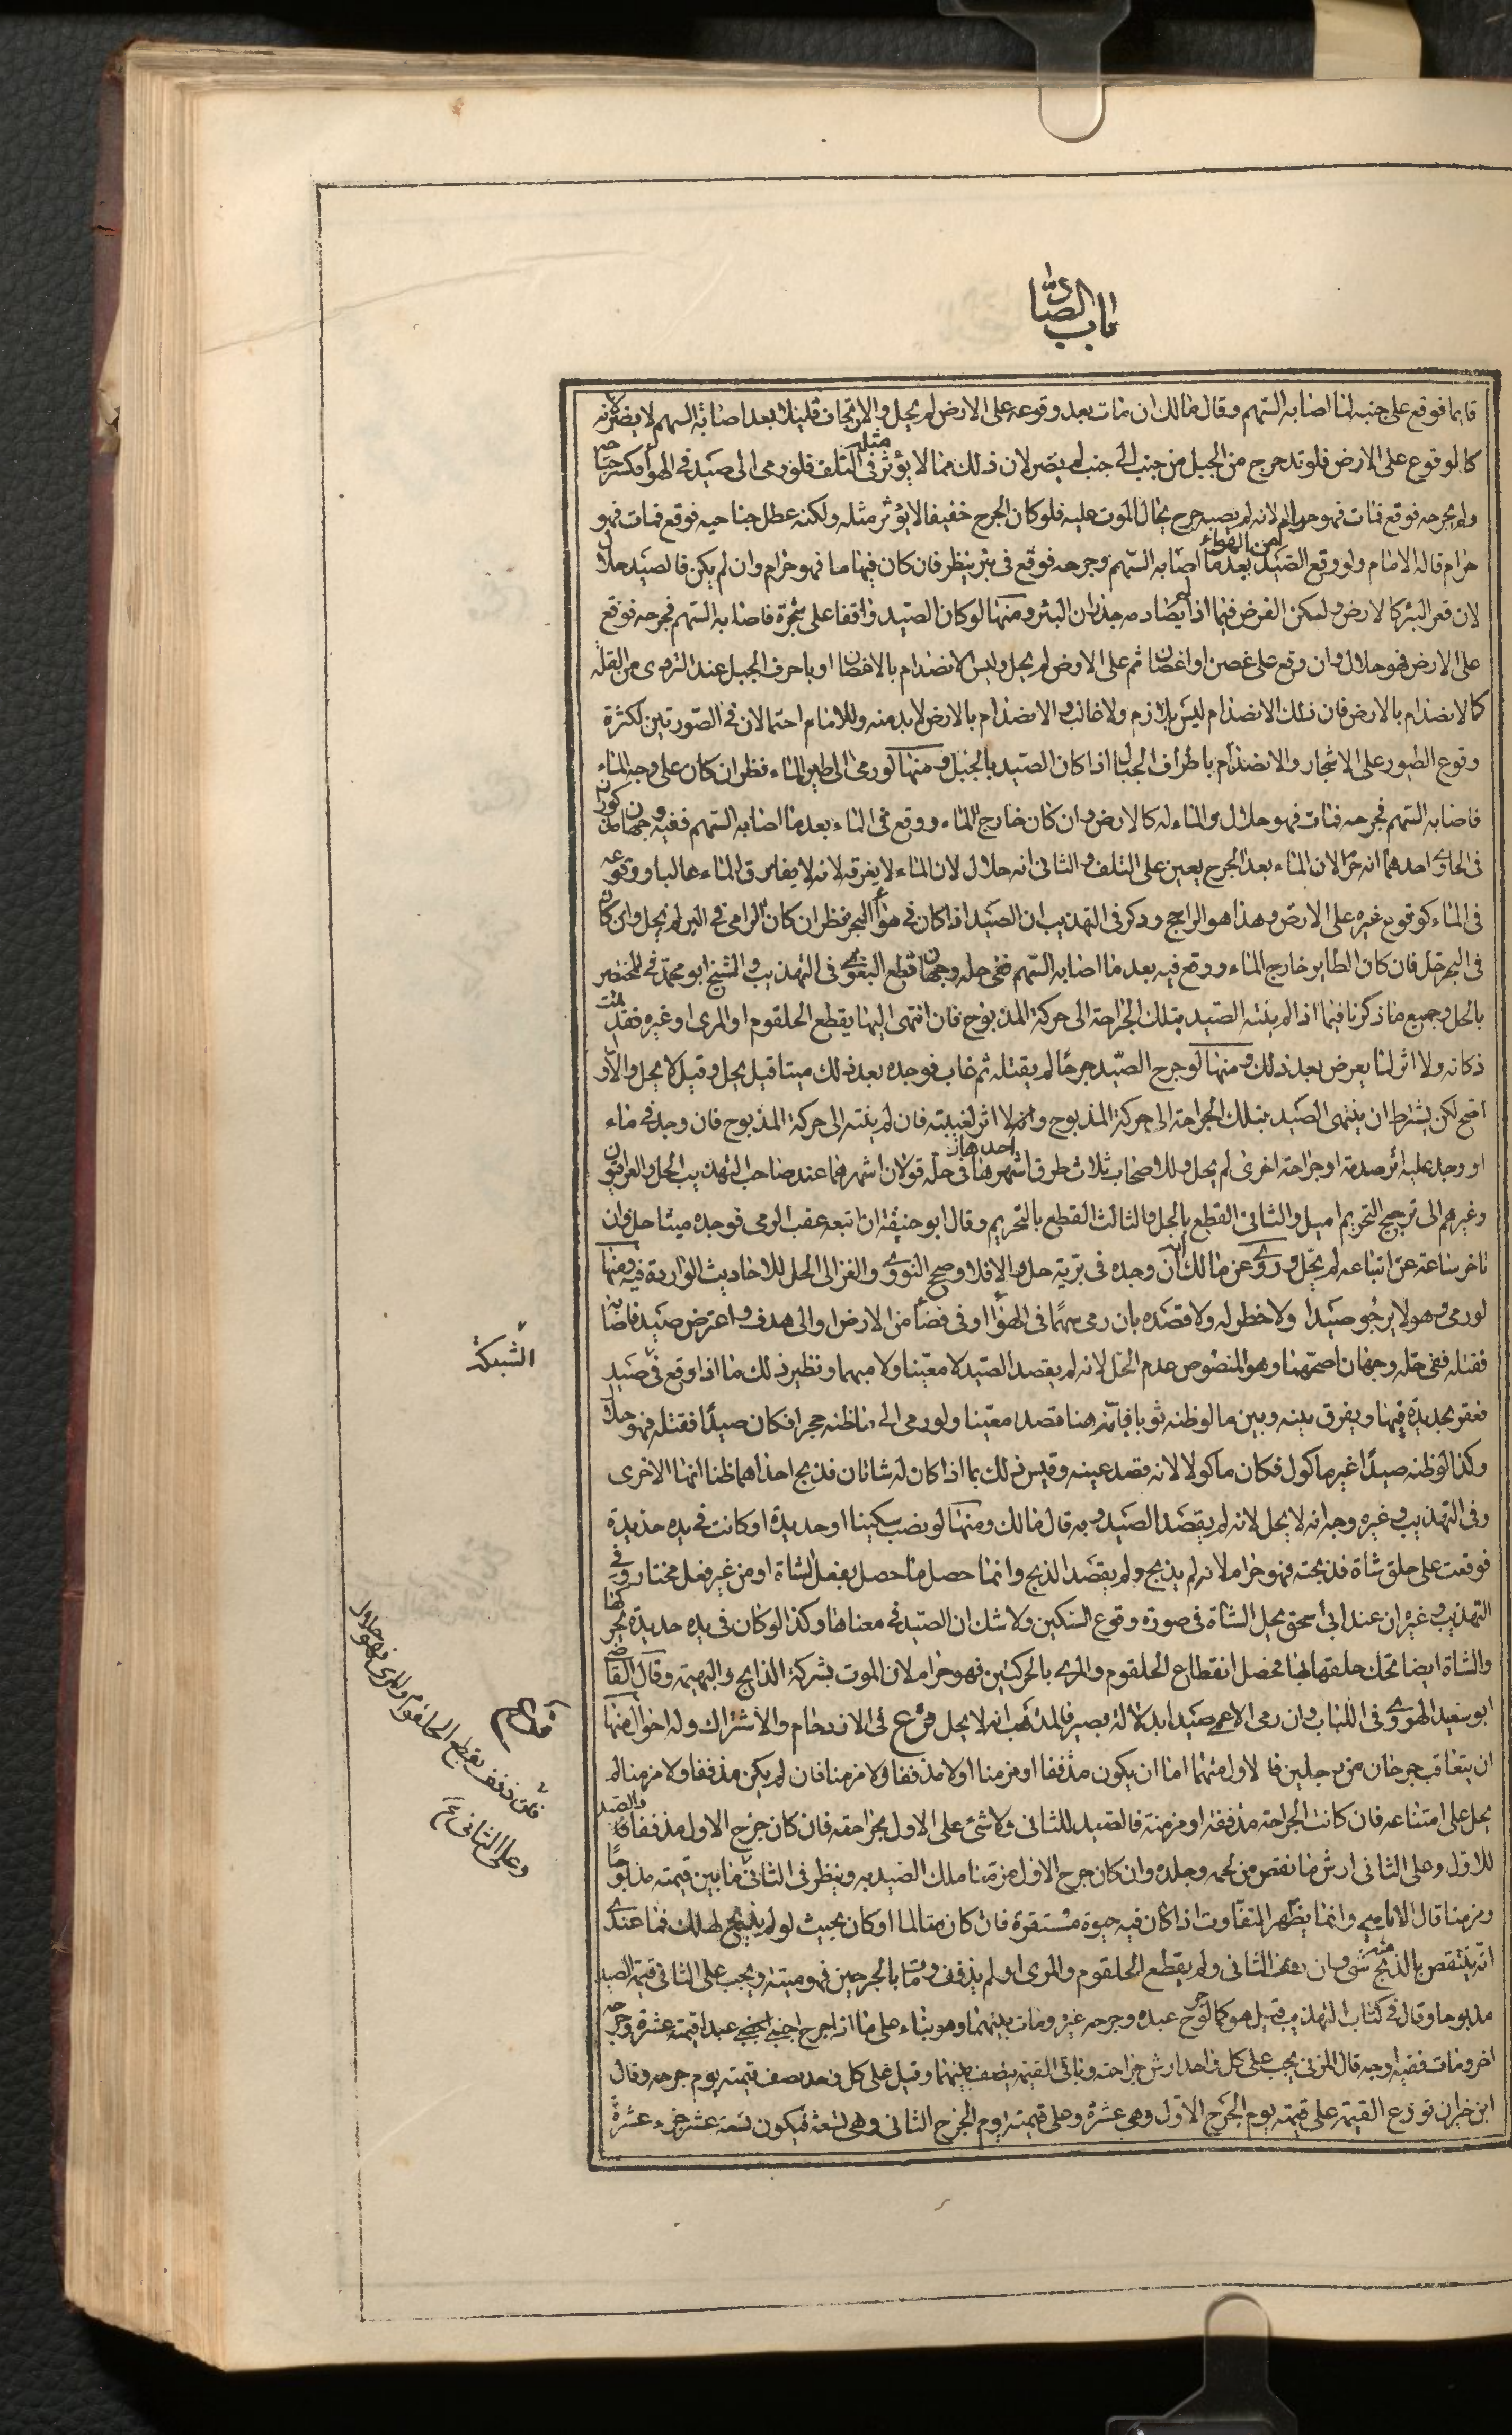 باب الصاد
قايما فوقع على جنبه لما اصابه السهم وقال مالك ان مات بعد وقوعه على الارض لم يحل والارتجاف قليلا بعد اصابة السهم لا يضر لانه
كالوقوع على الارض فلو تدحرج من الجبل من جنب الى جنب لم يضر لان ذلك مما لا يؤثر مثله فى التلف فلو رمى الى صيد فى الهوآ فكسر جناحه
ولم يجرحه فوقع فمات فهو حرام لانه لم يصبه جرح يحال الموت عليه فلو كان الجرح خفيفا لا يؤثر مثله ولكنه عطل جناحيه فوقع فمات فهو
حرام قاله الامام ولو وقع الصيد من الهواء بعد ما اصابه السهم وجرحه فوقع فى بئر ينظر فان كان فيها ما فهو حرام وان لم يكن فالصيد حلال
لان قعر البئر كالارض وليكن الفرض فيما اذا لم يصادمه جدران البئر ومنها لو كان الصيد واقفا على شجرة فاصابه السهم فجرحه فوقع
على الارض فهو حلال وان وقع على غصن او اغصان ثم على الارض لم يحل وليس الانصدام بالاغصان او باحرف الجبل عند التردى من القلة
كالانصدام بالارض فان ذلك الانصدام ليس بلازم ولا غالب والانصدام بالارض لا بد منه وللامام احتمالان فى الصورتين لكثرة
وقوع الطيور على الاشجار والانصدام باطراف الجبال اذا كان الصيد بالجبل ومنها لو رمى الى طير الماء فظران كان على وجه الماء
فاصابه السهم فجرحه فمات فهو حلال والماء له كالارض وان كان خارج الماء ووقع فى الماء بعد ما اصابه السهم ففيه وجهان مذكوران
فى الحاوى احدهما انه حرام لان الماء بعد الجرح يعين على التلف والثانى انه حلال لان الماء لا يغرقه لانه لا يفارق الماء غالبا ووقوعه
فى الماء كوقوع غيره على الارض وهذا هو الراجح وذكر فى التهذيب ان الصيد اذا كان فى هوآ البحر فظر ان كان الرامى فى البر لم يحل وان كان
فى البحر حل فان كان الطاير خارج الماء ووقع فيه بعد ما اصابه السهم ففى حله وجهان قطع البغوى فى التهذيب والشيخ ابو محمد فى المختصر
بالحل وجميع ما ذكرنا فيما اذا لم ينته الصيد بتلك الجراحة الى حركة المذبوح فان انتهى اليها بقطع الحلقوم او المرى او غيره فقد تمت
ذكاته ولا اثر لما يعرض بعد ذلك ومنها لو جرح الصيد جرحا لم يقتله ثم غاب فوجده بعد ذلك ميتا قيل يحل وقيل لا يحل والاول
اصح لكن بشرط ان ينتهى الصيد بتلك الجراحة الى حركة المذبوح ولا اثر لغيبته فان لم ينته الى حركة المذبوح فان وجد فى ماء
او وجد عليه اثر صدمة او جراحة اخرى لم يحل وللاصحاب ثلاث طرق اشهرها احدها ان فى حله قولان اشهرهما عند صاحب التهذيب الحل والعراقيون
وغيرهم الى ترجيح التحريم اميل والثانى القطع بالحل والثالث القطع بالتحريم وقال ابو حنيفة ان اتبعه عقب الرمى فوجده ميتا حل وان
تاخر ساعة عن اتباعه لم يحل وروى عن مالك انه ان وجده فى برية حل والا فلا وصحح النووى والغزالى الحل للاحاديث الواردة فيه ومنها
لو رمى وهو لا يرجو صيدا ولا خطر له ولا قصده بان رمى سهما فى الهوآ او فى فضآ من الارض او الى هدف واعترض صيد فاصابه
فقتله ففى حله وجهان اصحهما وهو المنصوص عدم الحل لانه لم يقصد الصيد لا معينا ولا مبهما ونظير ذلك ما اذا وقع فى صيد
فعقر بحديدة فيها ويفرق بينه وبين ما لو ظنه ثوبا بانه هنا قصد معينا ولو رمى الى ما ظنه حجرا فكان صيدا فقتله فهو حلال
وكذا لو ظنه صيدا غير ماكول فكان ماكولا لانه قصد عينه وقيس ذلك بما اذا كان له شاتان فذبح احداهما ظنا انها الاخرى
وفى التهذيب وغيره وجه انه لا يحل لانه لم يقصد الصيد وبه قال مالك ومنها لو نصب سكينا او حديدة او كانت فى يده حديدة
فوقعت على حلق شاة فذبحته فهو حرام لانه لم يذبح ولم يقصد الذبح وانما حصل ما حصل بفعل الشاة او من غير فعل مختار وفى
التهذيب وغيره ان عند ابى اسحق يحل الشاة فى صورة وقوع السكين ولا شك ان الصيد فى معناها وكذا لو كان فى يده حديدة يحركها
والشاة ايضا تحك حلقها بها فحصل انقطاع الحلقوم والمرى بالحركتين فهو حرام لان الموت بشركة الذابح والبهيمة وقال القاضى
ابو سعيد الهروى فى اللباب وان رمى الاعمى صيدا بدلالة بصير فالمذهب انه لا يحل فرع فى الازدحام والاشتراك وله احوال منها
ان يتعاقب جرحان من رجلين فالاول منهما اما ان يكون مذففا او مزمنا او لا مذففا ولا مزمنا فان لم يكن مذففا ولا مزمنا لم
يحل على امتناعه فان كانت الجراحة مذففة او مزمنة فالصيد للثانى ولا شئ على الاول بجراحته فان كان جرح الاول مذففا فالصيد
للاول وعلى الثانى ارش ما نقص من لحمه وجلده وان كان جرح الاول مزمنا ملك الصيد به وينظر فى الثانى ما بين قيمته مذبوحا
ومزمنا قال الامام وانما يظهر التفاوت اذا كان فيه حيوة مستقرة فان كان متالما او كان بحيث لو لم يذبح لهلك فما عندى
انه ينتقص بالذبح منه شئ وان ولم يقطع الحلقوم والمرى او لم يذفف ومات بالجرحين فهو ميتة ويجب على الثانى قيمة الصيد
مذبوحا وقال فى كتاب التهذيب قيل هو كما لو جرح عبده وجرحه غيره ومات بينهما وهو بناء على ما اذا جرح اجنبى عبدا قيمته عشرة وجرحه
اخر ومات ففيه اوجه قال المزنى يجب على كل واحد ارش جراحته وباقى القيمة ينصف بينهما وقيل على كل واحد نصف قيمته يوم جرحه وقال
ابن خيران توزع القيمة على قيمته يوم الجرح الاول وهى عشرة وعلى قيمته يوم الجرح الثانى وهى تسعة فيكون تسعة عشر جزء عشرة
الشبكة
فان ذفف بقطع الحلقوم والمرى فهو حلال
وعلى الثانى